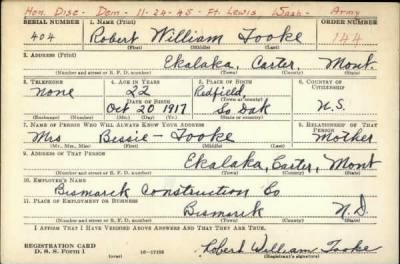 Hon. Disc - Dem - 11-24-45 - Ft. Lewis Wash - Army
SERIAL NUMBER 1. NAME (Print) ORDER NUMBER
404 Robert William Tooke 144
(First) (Middle) (Last)
2. ADDRESS (Print)
Ekalaka, Carter, Mont.
(Number and street or R. F. D. number) (Town) (County) (State)
3. TELEPHONE 4. AGE IN YEARS 5. PLACE OF BIRTH 6. COUNTRY OF CITIZENSHIP
None 22 Redfield,
DATE OF BIRTH (Town or county)
Oct 20 1917 So Dak U.S.
(Exchange) (Number) (Mo.) (Day) (Yr.) (State or country)
7. NAME OF PERSON WHO WILL ALWAYS KNOW YOUR ADDRESS 8. RELATIONSHIP OF THAT PERSON
Mrs Bessie - Tooke Mother
(Mr., Mrs., Miss) (First) (Middle) (Last)
9. ADDRESS OF THAT PERSON
Ekalaka, Carter, Mont
(Number and street or R. F. D. number) (Town) (County) (State)
10. EMPLOYER'S NAME
Bismarck Construction Co
11. PLACE OF EMPLOYMENT OR BUSINESS
Bismarck N.D.
(Number and street or R. F. D. number) (Town) (County) (State)
I AFFIRM THAT I HAVE VERIFIED ABOVE ANSWERS AND THAT THEY ARE TRUE.
REGISTRATION CARD
D. S. S. Form 1 (over) 16-17105 Robert William Tooke
(Registrant's signature)